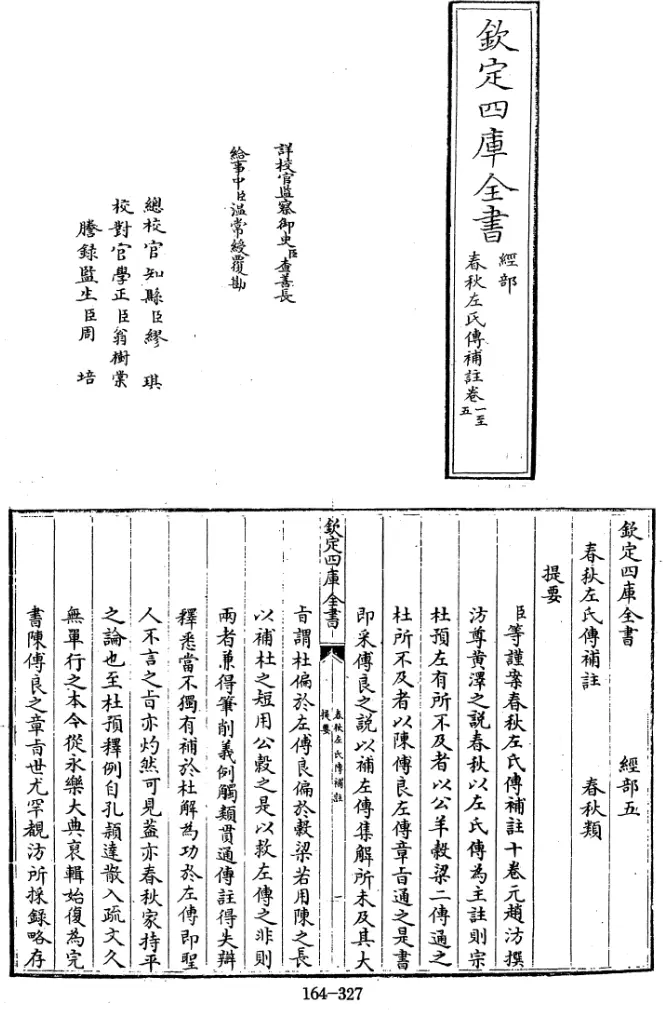 欽定四庫全書
經部
春秋左氏傳補註卷一至五
詳校官監察御史臣查善長
給事中臣溫常綬覆勘
總校官知縣臣繆琪
校對官學正臣翁樹棠
謄録監生臣周培
欽定四庫全書 經部五
春秋左氏傳補註 春秋類
提要
臣等謹案春秋左氏傳補註十卷元趙汸撰
汸尊黄澤之説春秋以左氏傳為主註則宗
杜預左有所不及者以公羊穀梁二傳通之
杜所不及者以陳傅良左傳章㫖通之是書
即采傅良之説以補左傳集解所未及其大
欽定四庫全書
春秋左氏傳補註
提要
一
㫖謂杜偏於左傅良偏於穀梁若用陳之長
以補杜之短用公穀之是以救左傳之非則
兩者兼得筆削義例觸類貫通傳註得失辨
釋悉當不獨有補於杜解為功於左傳即聖
人不言之㫖亦灼然可見蓋亦春秋家持平
之論也至杜預釋例自孔穎達散入疏文久
無單行之本今從永樂大典裒輯始復為完
書陳傅良之章㫖世尤罕覯汸所採録略存
164-327